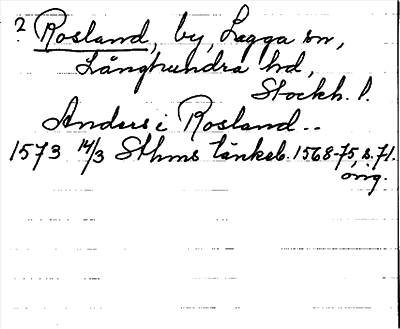 ? Rosland, by, Lagga sn,
Långhundra hd,
Stockh. l.
Anders i Rosland..
1573 14/3 Sthms tänkeb. 1568-75, s. 71.
orig.